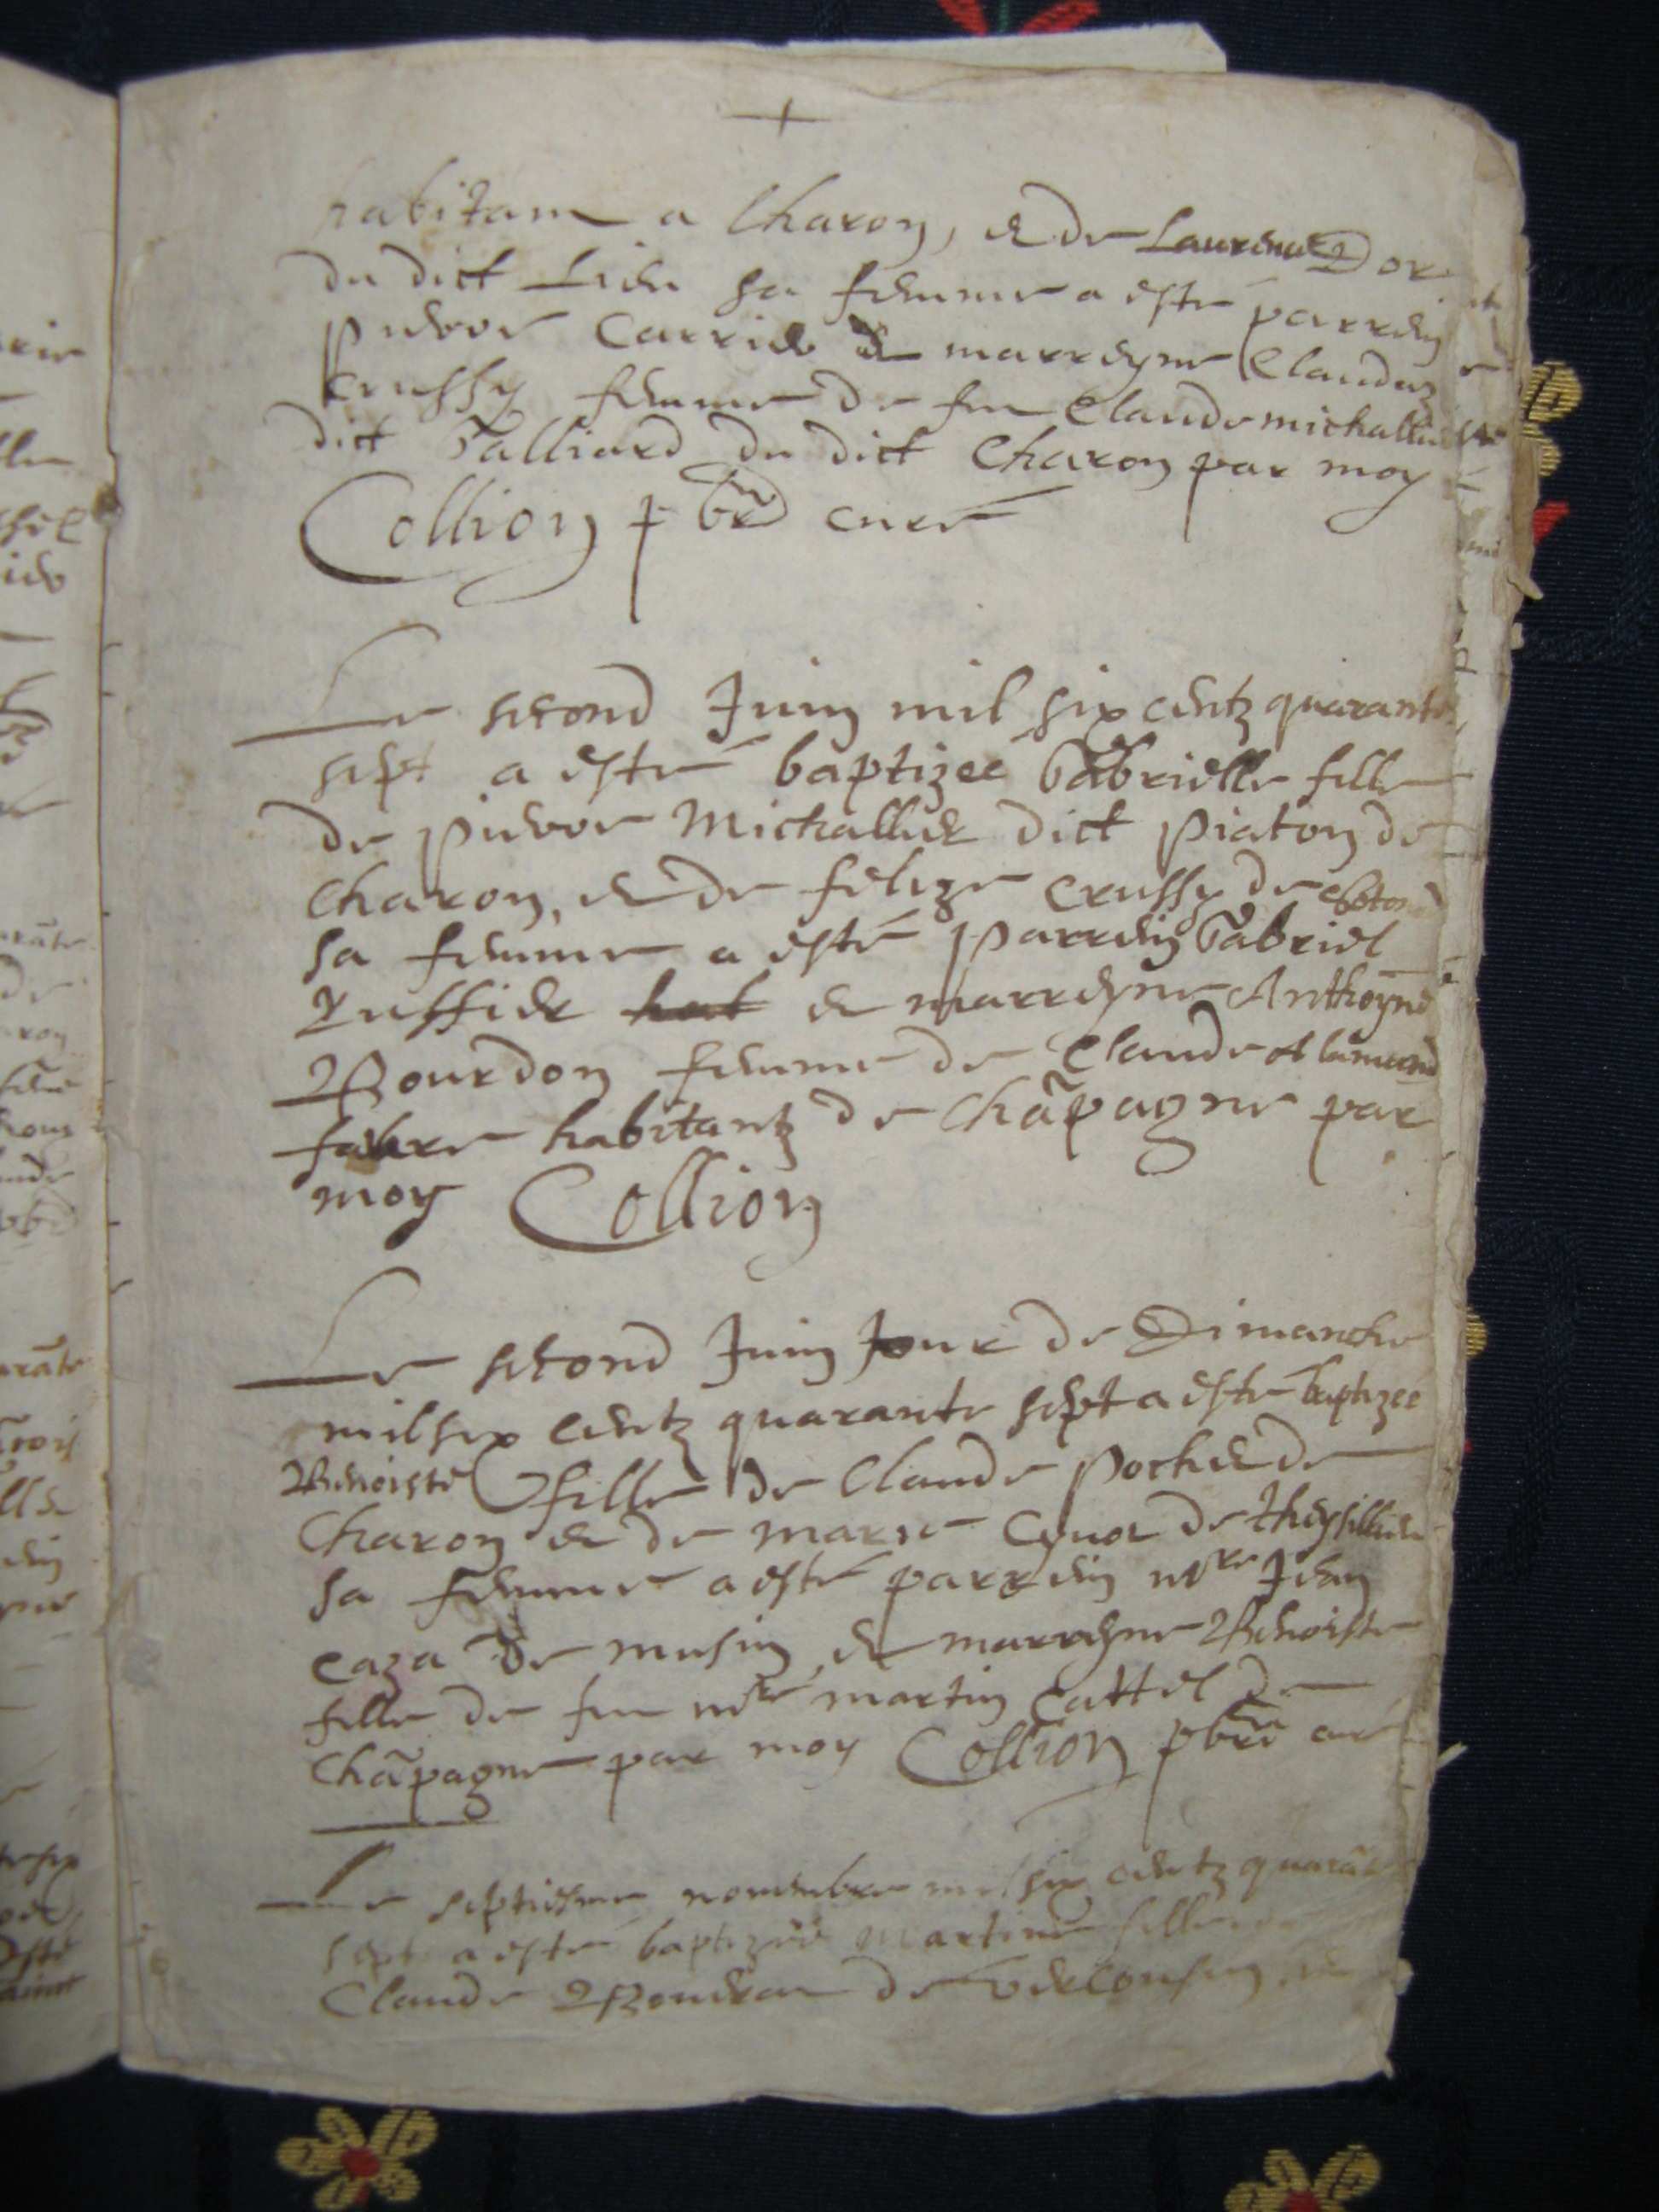 +
habitant a Charon, et de Laurence Dor
du dict Lieu sa femme a esté parrein
pierre Carrier et marreyne Claudaz
crussy femme de feu Claude michallet
dict Galliard du dict Charon par moy
Collion pbre curé
Le second Juin mil six centz quarante
sept a esté baptizee Gabrielle fille
de pierre Michallet dict piaton de
Charon, et de felize crussy de
sa femme a esté parrein Gabriel
Ruffier et marreyne Anthoyne
Bourdon femme de Claude
fabre habitantz de Chãpagne par
moy Collion
Le second Juin Jour de Dimanche
mil six centz quarante sept a esté baptizee
Benoiste fille de Claude pochet de
Charon et de marie de
sa femme a esté parrein mre Jean
caza de musin, et marreyne Benoiste
fille de feu mre martin cattel de
Chãpagne par moy Collion pbre curé
Le septiesme novembre mil six centz quarãte
sept a esté baptizée Martine fille
Claude de